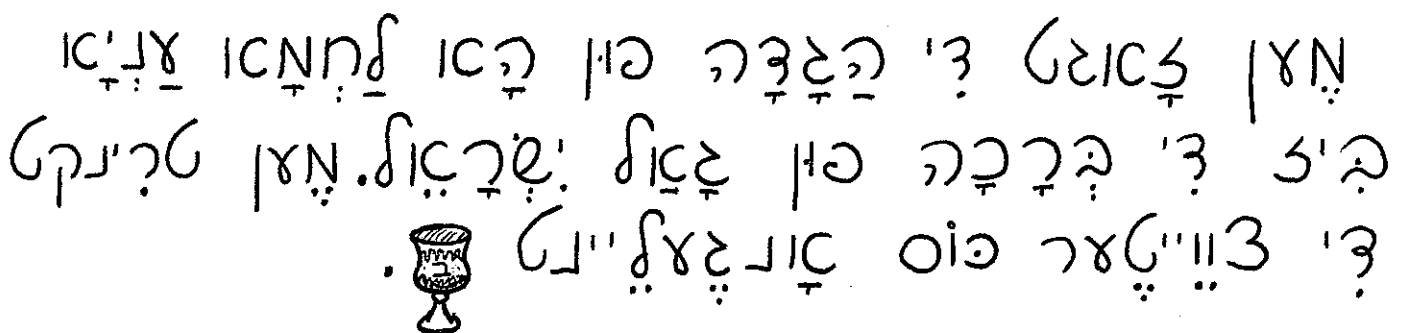 מֶען זָאגט דִי הַגָדָה פוּן הָא לַחְמָא עַנְיָא
בִּיז דִי בְּרָכָה פוּן גָאַל יִשְׂרָאֵל. מֶען טרִינקט
דִי צווֵייטֶער כּוֹס אָנגֶעלֵיינט ב.